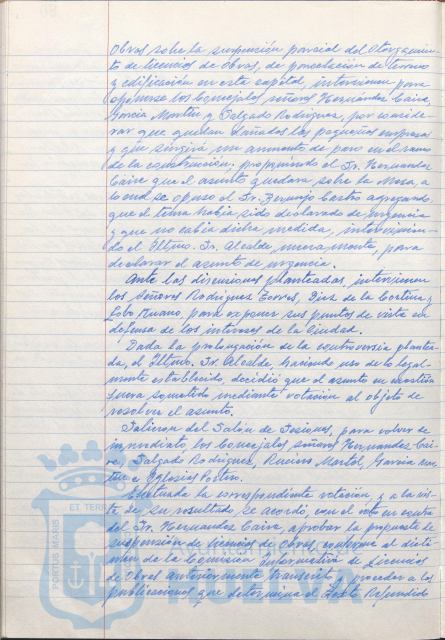 Obras sobre la suspensión parcial del Otorgamien-
to de licencias de Obras, de parcelación de terreno
y edificación en esta capital, intervienen para
oponerse los Concejales señores Hernández Caire,
García Montes y Salgado Rodríguez, por conside-
rar que quedan dañadas las pequeñas empresas
y que surgirá un aumento de paro en el ramo
de la construcción, proponiendo el Sr. Hernández
Caire que el asunto quedara sobre la Mesa, a
lo cual se opuso el Sr. Bermejo Castro agregando
que el tema había sido declarado de urgencia
y que no cabía dicha medida, intervinien-
do el Iltmo. Sr. Alcalde, nuevamente, para
declarar el asunto de urgencia.
Ante las discusiones planteadas, intervienen
los Señores Rodríguez Torres, Díaz de la Cortina y
Lobo Ruano, para exponer sus puntos de vista en
defensa de los intereses de la Ciudad.
Dada la prolongación de la controversia plantea-
da, el Iltmo. Sr. Alcalde, haciendo uso de lo legal-
mente establecido, decidió que el asunto en cuestión
fuera sometido mediante votación al objeto de
resolver el asunto.
Salieron del Salón de Sesiones, para volver de
inmediato, los Concejales señores Hernández Cai-
re, Salgado Rodríguez, García
e Iglesias
Efectuada la correspondiente votación, y a la vis-
ta de su resultado se acordó, con el voto en contra
del Sr. Hernández Caire, aprobar la propuesta de
suspensión de licencias de Obras, conforme al dicta-
men de la Comisión Informativa de Licencias
de Obras anteriormente transcrito, y proceder a las
publicaciones que determina el Texto Refundido
PORTUS MARIS ET TERR
Ayuntamiento de
HUELVA